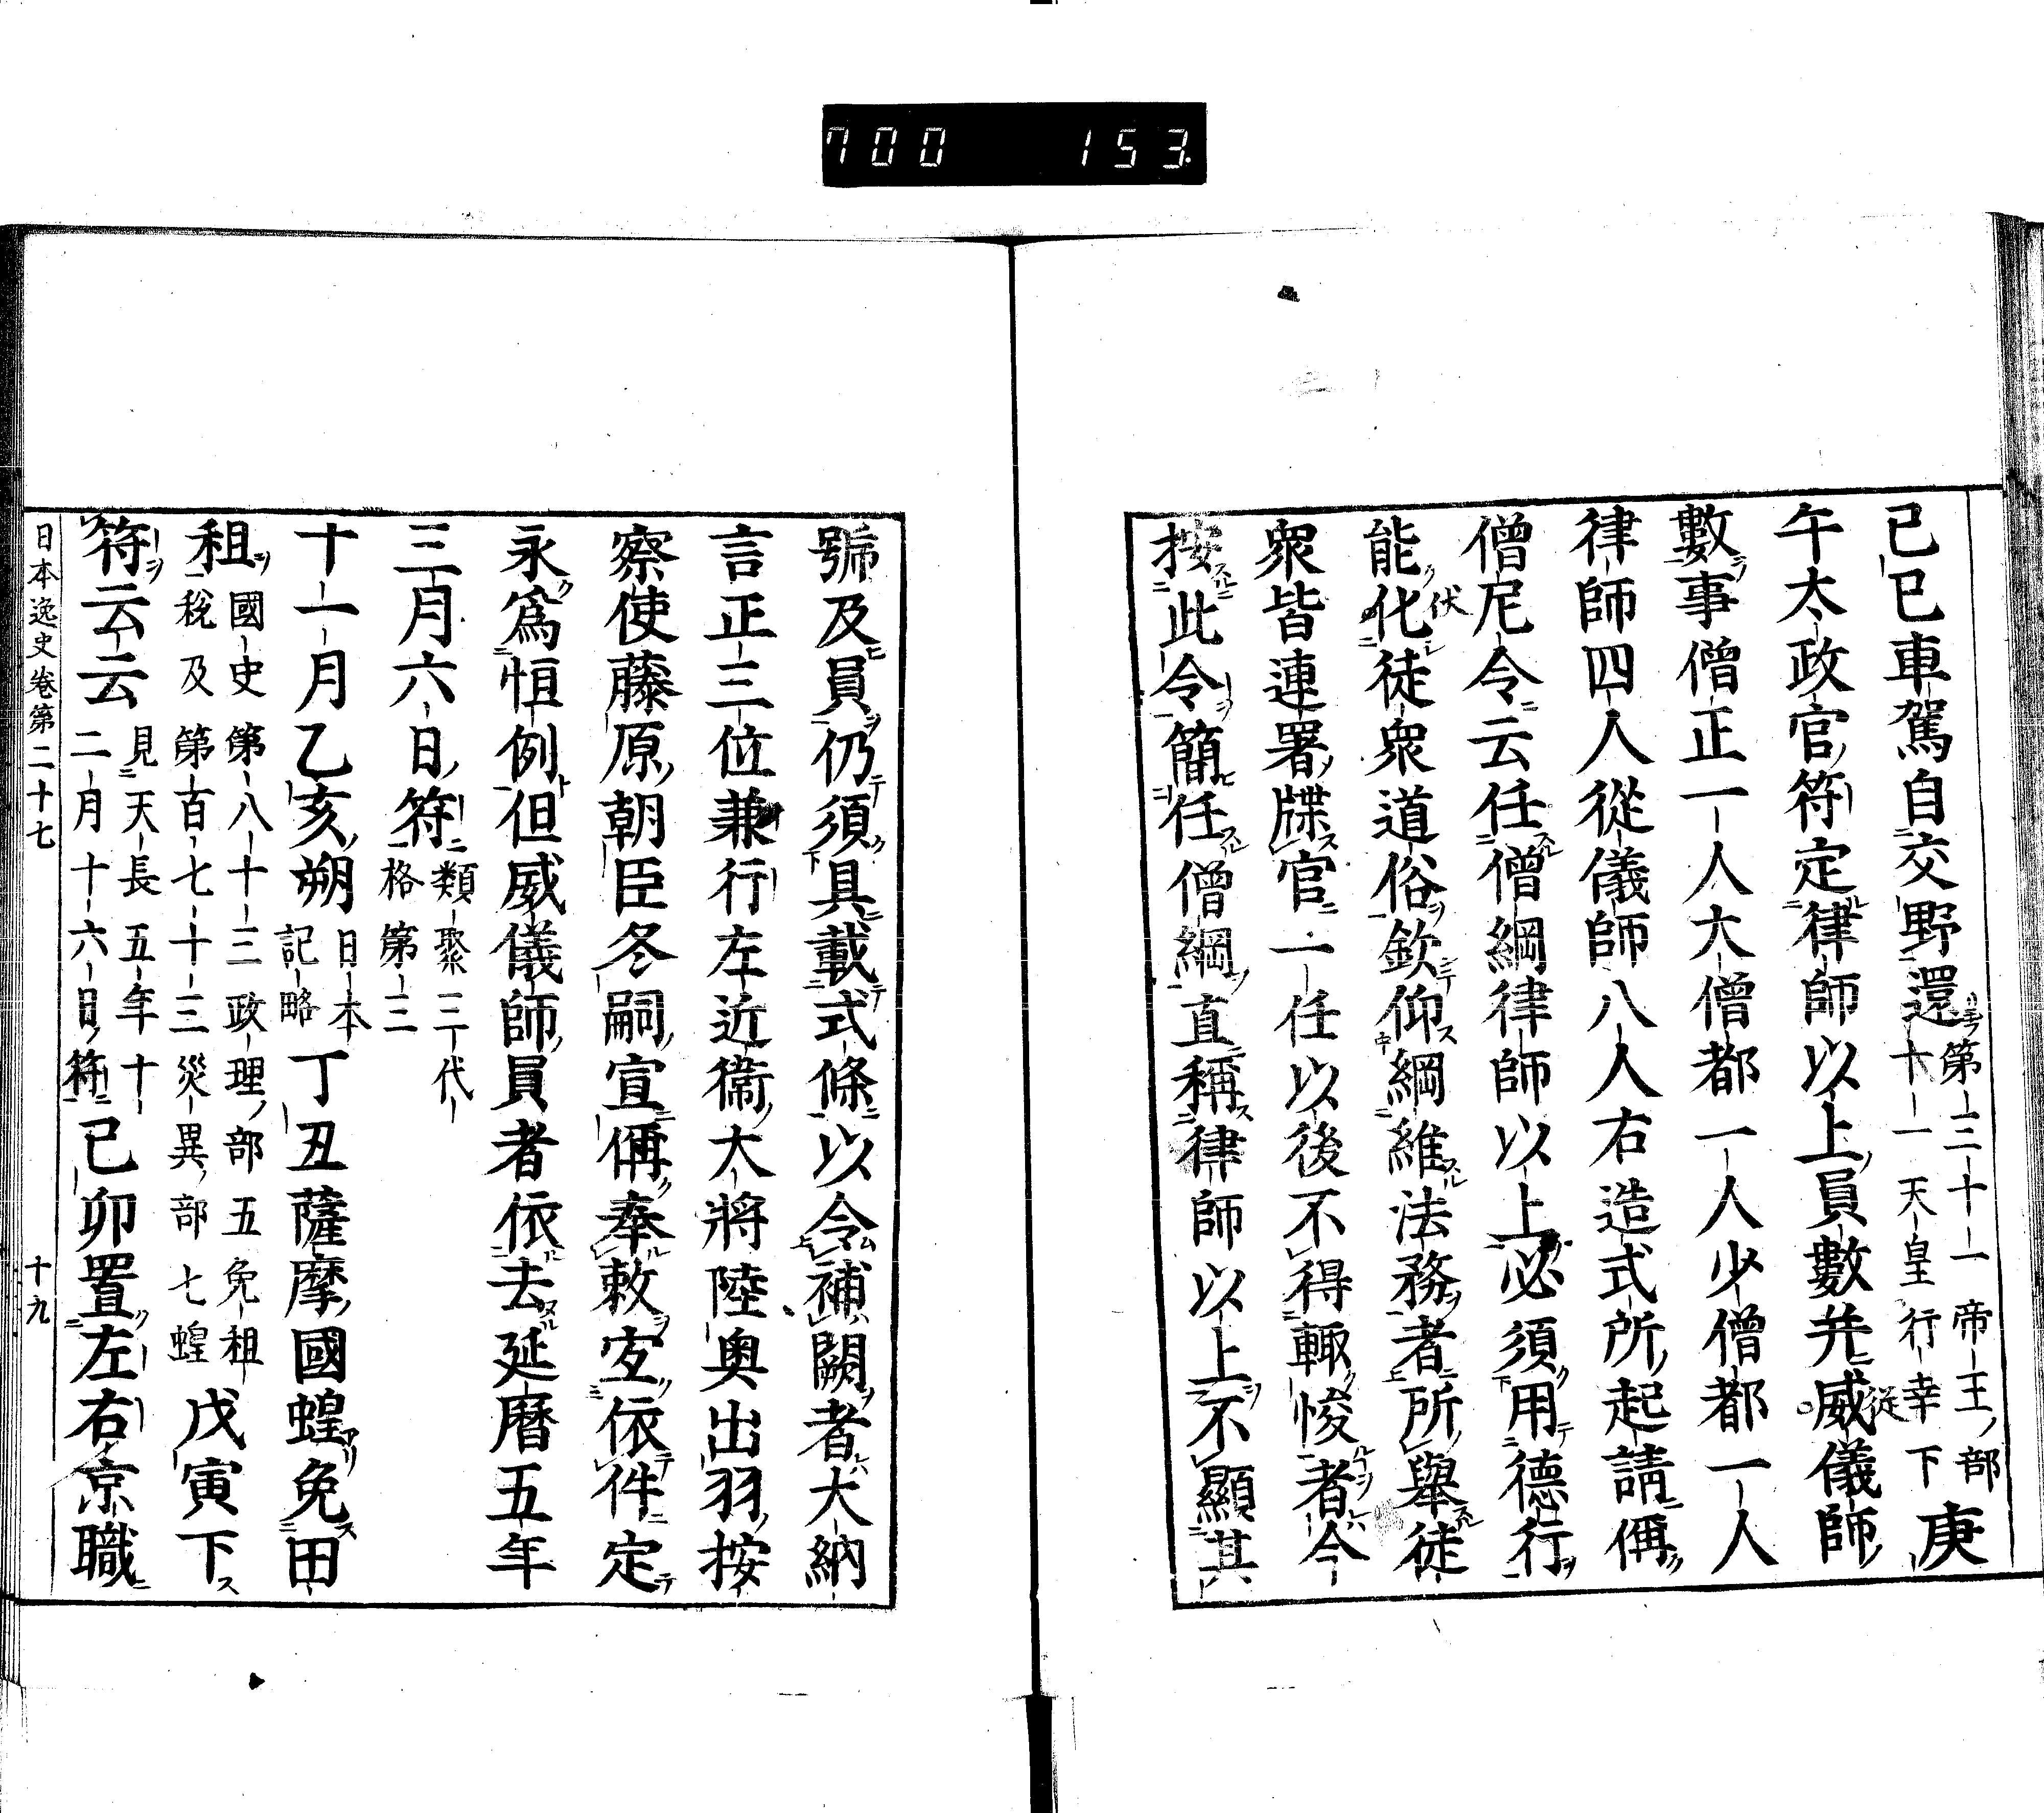 700 153.
己巳車駕自交野還第三十一帝王部十一天皇行幸下庚
午太政官符定律師以上員數并從威儀師
數事僧正一人大僧都一人少僧都一人
律師四人從儀師八人右造式所起請偁
僧尼令云任僧綱律師以上必須用德行
能伏化徒衆道俗欽仰綱維法務者所擧徒
衆皆連署牒官一任以後不得輙悛者今
按此令簡任僧綱直稱律師以上不顯其
號及員仍須具載式條以令補闕者大納
言正三位兼行左近衞大將陸奥出羽按
察使藤原朝臣冬嗣宣偁奉敕宜依件定
永爲恒例但威儀師員者依去延曆五年
三月六日符類聚三代格第三
十一月乙亥朔日本記略丁丑薩摩國蝗免田
租國史第八十三政理部五免租税及第百七十三災異部七蝗戊寅下
符云云見天長五年十二月十六日符己卯置左右京職
日本逸史卷第二十七 十九